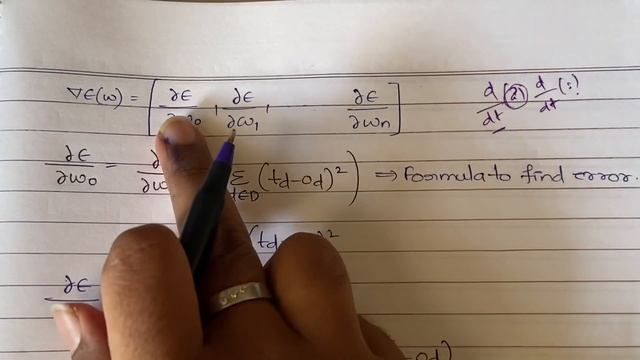 ∇E(w) = [∂E/∂w₀, ∂E/∂w₁, ∂E/∂wn]
d/dt (2) d/dt (:)
∂E/∂w₀ = ∂/∂w Σ d∈D (td-od)²) ⇒ Formula to find error.
(td-
)²
∂E
od)